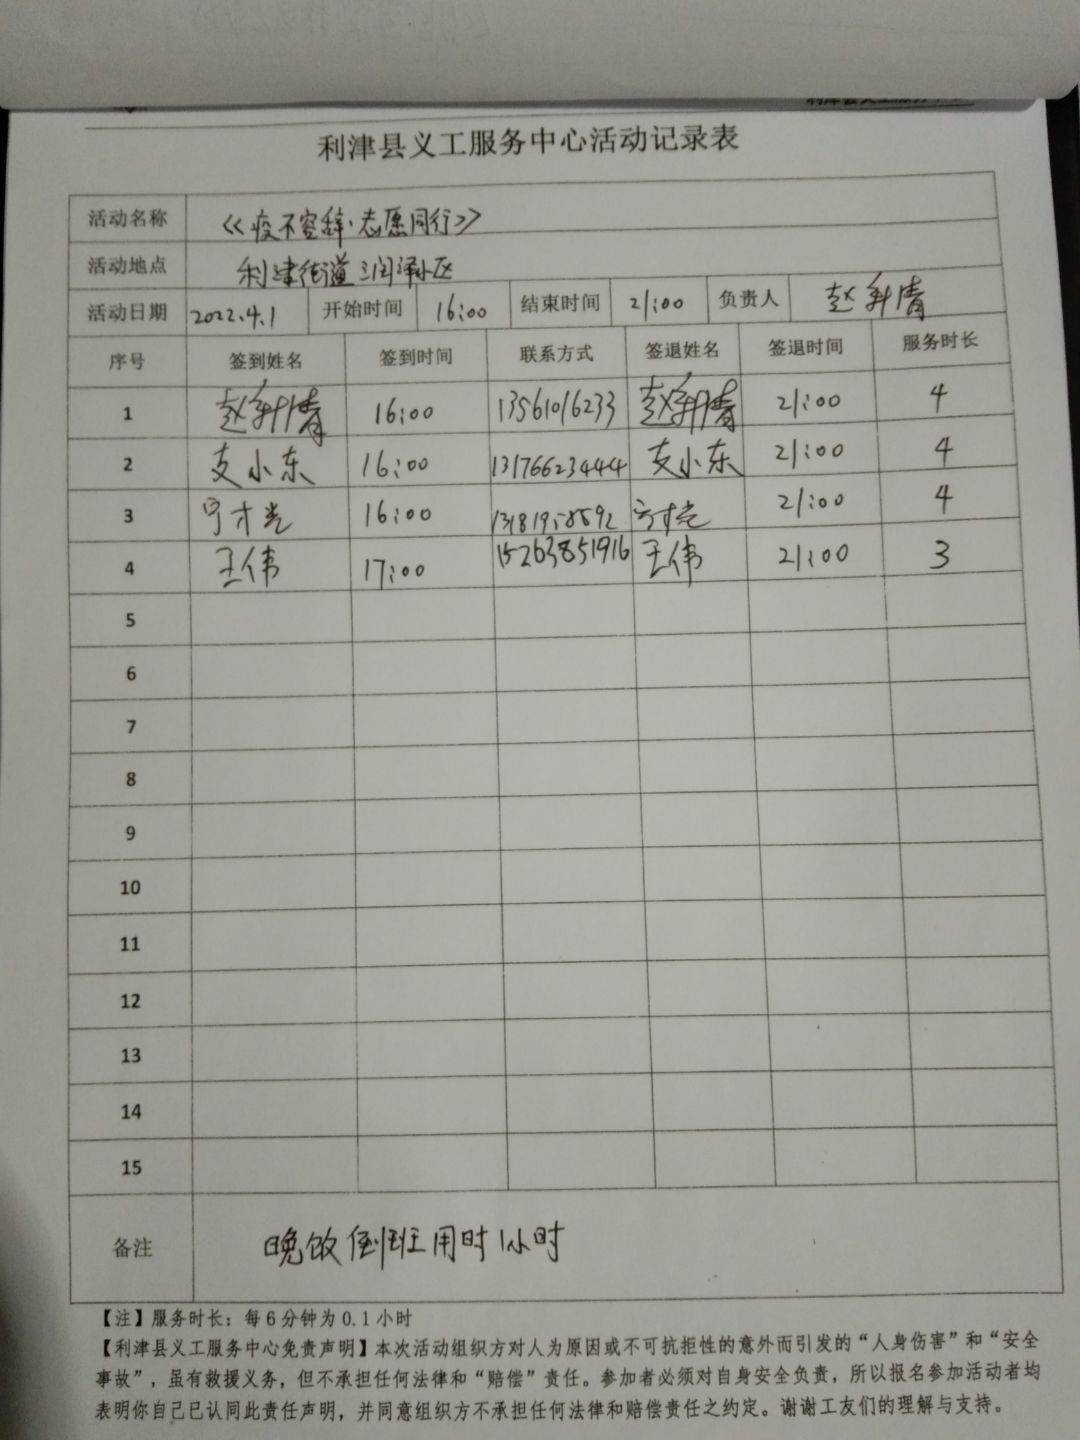 利津县义工服务中心活动记录表
活动名称 《疫不容辞·志愿同行》
活动地点 利津街道三润泽小区
活动日期 2022.4.1 开始时间 16:00 结束时间 21:00 负责人 赵 清
序号 签到姓名 签到时间 联系方式 签退姓名 签退时间 服务时长
1 赵 清 16:00 13561016233 赵 清 21:00 4
2 支小东 16:00 13176623444 支小东 21:00 4
3 才光 16:00 才光 21:00 4
4 王伟 17:00 15263851916 王伟 21:00 3
5
6
7
8
9
10
11
12
13
14
15
备注 晚饭倒班用时1小时
【注】服务时长：每6分钟为0.1小时
【利津县义工服务中心免责声明】本次活动组织方对人为原因或不可抗拒性的意外而引发的“人身伤害”和“安全
事故”，虽有救援义务，但不承担任何法律和“赔偿”责任。参加者必须对自身安全负责，所以报名参加活动者均
表明你自己已认同此责任声明，并同意组织方不承担任何法律和赔偿责任之约定。谢谢工友们的理解与支持。